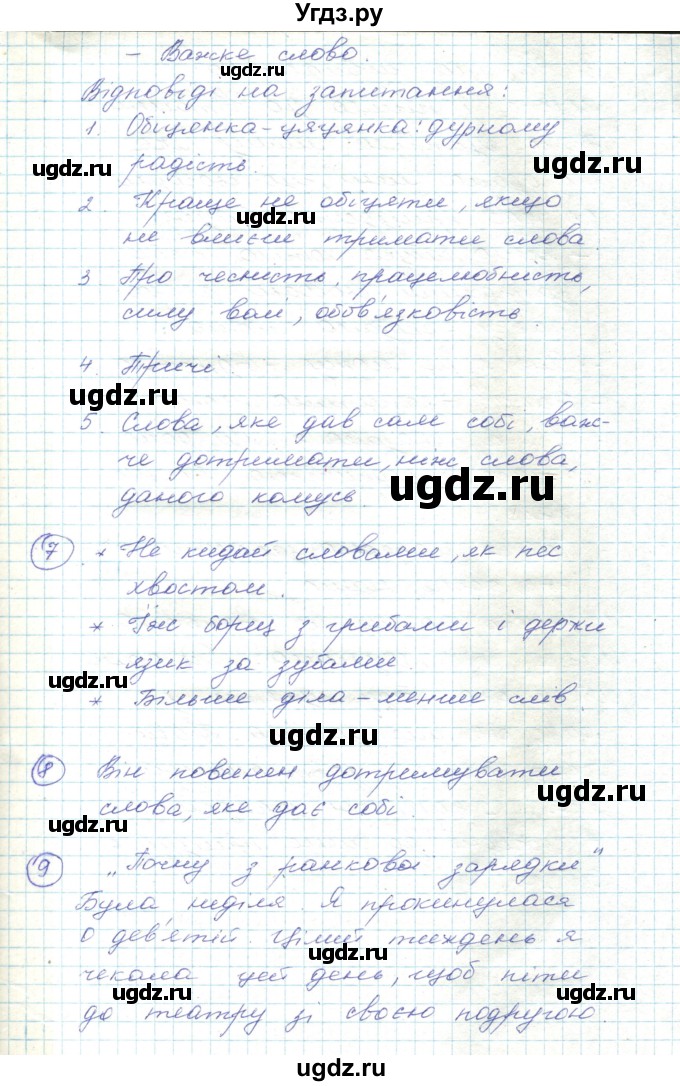 Угдз.ру
- Важке слово.
ugdz.ru
Відповіді на запитання:
1. Обіцянка-цяцянка: дурному
ugdz.ru
радість.
ugdz.ru
2 Краще не обіцяти, якщо
ugdz.ru
не вмієш тримати слова.
3 Про чесність, працелюбність,
ugdz.ru
силу волі, обов'язковість
4. Тричі.
ugdz.ru
5. Слова, яке дав сам собі, важ-
че дотримати, ніж слова,
даного комусь
ugdz.ru
7 * Не кидай словами, як пес
хвостом.
* Їж борщ з грибами і держи
язик за зубами.
ugdz.ru
* Більше діла - менше слів.
ugdz.ru
8 Він повинен дотримувати
ugdz.ru
слова, яке дає собі.
ugdz.ru
9 „Почну з ранкової зарядки"
Була неділя. Я прокинулася
о дев'ятій. Цілий тиждень я
чекала цей день, щоб піти
ugdz.ru
ugdz.ru
до театру зі своєю подругою.
ugdz.ru